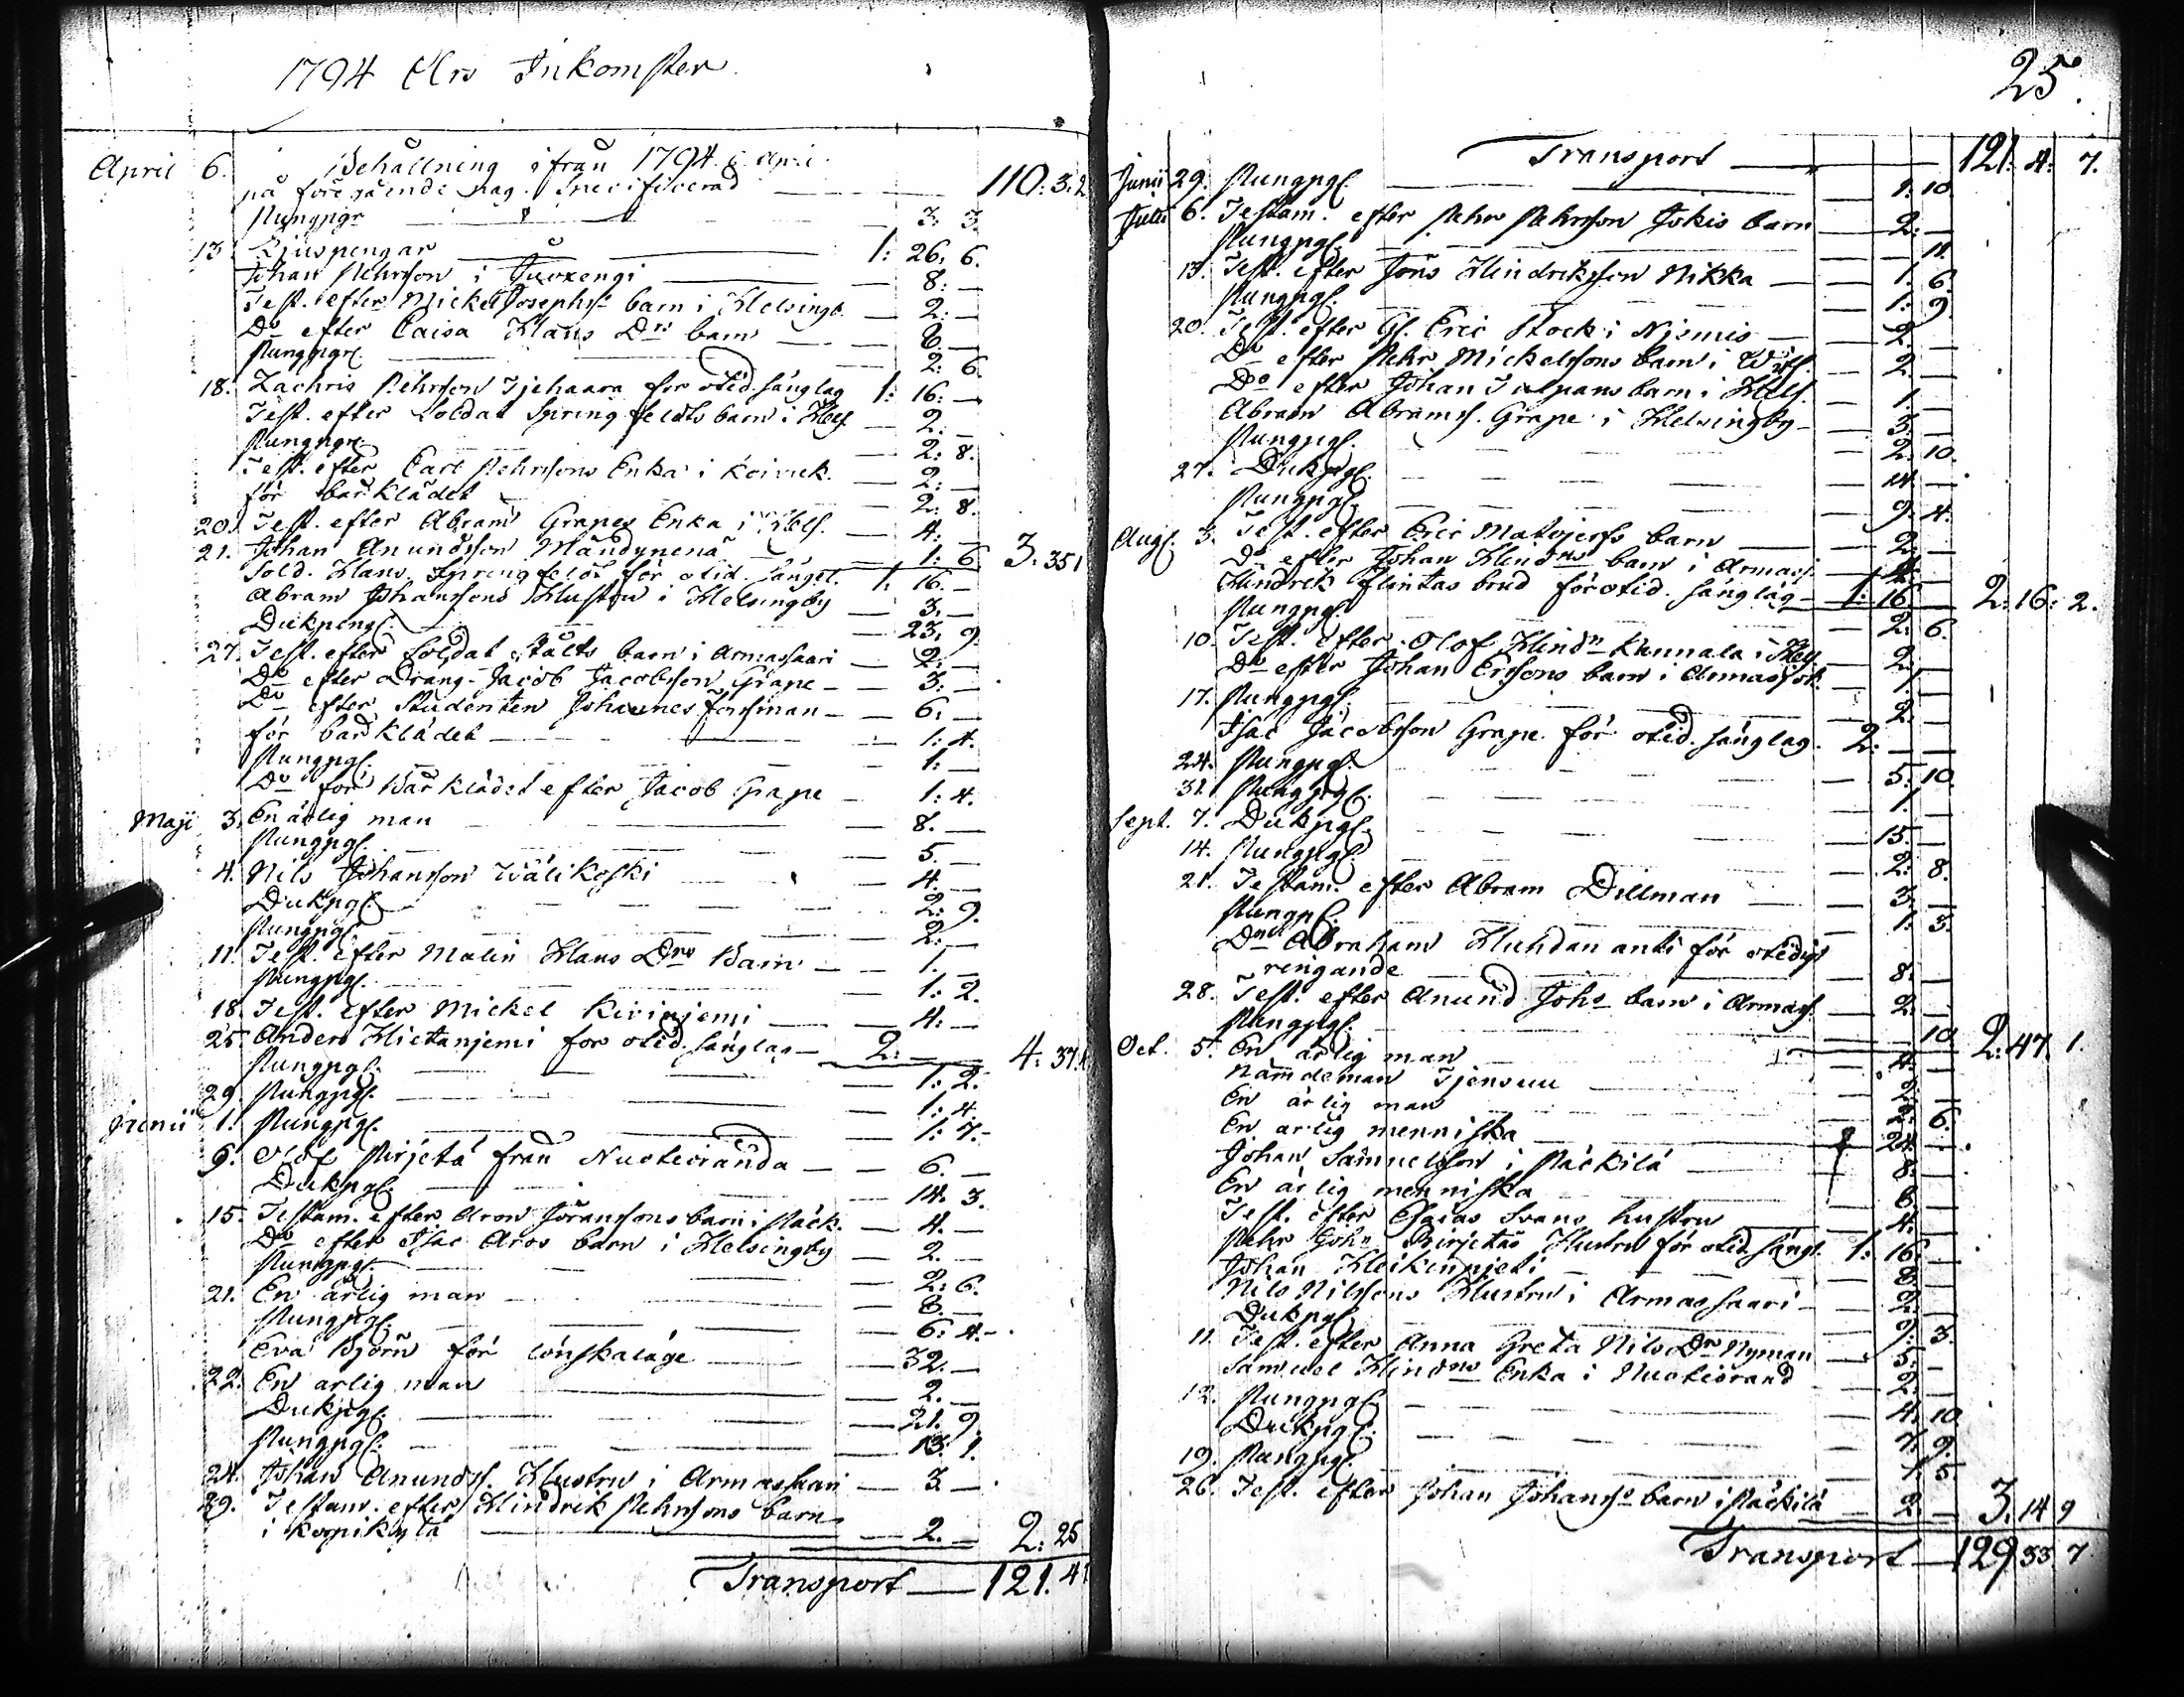 1794 Års Inkomster
April 6. Behållning ifrån 1794. 6 Apr.
på föregående pag. Specificerad 110: 3: 2
Pungpgr 3: 3.
13. Ljuspengar 1: 26: 6.
Johan Pehrsson i Juoxengi 8: —
Test. efter Mickel Josephs: barn i Helsingb. 2: —
Do efter Caisa Hans Drs barn 8. —
Pungpgr 2: 6.
18. Zachris Pehrsson Tjehaara för otid. sänglag 1: 16: —
Test. efter Soldat Springfeldts barn i Hels. 2. —
Pungpgr 2: 8.
Test. efter Carl Pehrssons Enka i Koivuk. 2: —
för barklädet 2: 8.
20. Test. efter Abram Grapes Enka i Hels. 4. —
21. Johan Anundsson Mändynenä 1: 6. 3: 35 1
Sold. Hans Springfeldt för otid. sängl. 1: 16. —
Abram Johanssons Hustru i Helsingby 3. —
Dukpengr. 23: 9.
27. Test. efter Soldat Stålts barn i Armassaari 2: —
Do efter Dräng Jacob Jacobsson Grape 3: —
Do efter Studenten Johannes Forsman 6: —
för barklädet 1: 4.
Pungpgr. 1: —
Do för Bårklädet efter Jacob Grape 1: 4.
Maji 3. En ärlig man 8. —
Pungpgr. 5. —
4. Nils Johansson Wälikoski 4. —
Dukpgr. 2: 9.
Pungpgr. 2: —
11. Test. efter Malin Hans Drs Barn 1. —
Pungpgr. 1: 2.
18. Test. efter Mickel Kivinjemi 4: —
25. Anders Hietanjemi för otid. sänglag 2: — 4: 37.
Pungpgr. 1: 2.
29. Pungpgr. 1: 4.
Junii 1. Pungpgr. 1: 7. —
9. Olof Pirjetä från Nuotioranda 6. —
Dukpgr. 14. 3.
15. Testam. efter Aron Göranssons barn i Päck. 4. —
Do efter Isac Aros barn i Helsingby 2. —
Pungpgr. 2: 6.
21. En ärlig man 8. —
Pungpgr. 6: 4. —
Eva Björn för lönskaläge 32. —
22. En ärlig man 2. —
Dukpgr. 21. 9.
Pungpgr. 13. 1.
24. Johan Anunds. Hustru i Armassaari 3. —
29. Testam. efter Hindrik Pehrssons barn
i Korpikylä 2. — 2: 25
Transport 121. 4
25.
Transport 121: 4: 7.
Junii 29. Pungpgr. 1: 10.
Julii 6. Testam. efter Pehr Pehrsson Jokis barn 2: —
Pungpgr. 11.
13. Test. efter Jöns Hindricksson Nikka 1: 6.
Pungpgr. 1: 9.
20. Test. efter Gl. Eric Stock i Njemis 2. —
Do efter Pehr Mickelssons barn i 2. —
Do efter Johan barn i Hels. 1. —
Abram Abrams. Grape i Helsingby 3. —
Pungpgr. 2: 10.
27. Dukpgr. 14. —
Pungpgr. 9: 4.
Aug. 3. Test. efter Eric barn 2. —
Do efter Johan Hindns barn i Armass. 4: —
Hindrik Flintas brud för otid. sänglag 1: 16. — 2: 16: 2.
Pungpgr. 2: 6.
10. Test. efter Olof Hindn Kannala i Hels. 2. —
Do efter Johan Ericssons barn i Armass. 1. —
17. Pungpgr. 2. —
Isac Jacobsson Grape för otid. sänglag. 2. — —
24. Pungpgr. 5. 10.
31. Pungpgr. 1. —
Sept. 7. Dukpgr. 15. —
14. Pungpgr. 2: 8.
21. Testam. efter Abram Dillman 3. —
Pungpgr. 1: 3.
Abraham Huhdananti för otidigt
ringande 8. —
28. Test. efter Anund Johs barn i Armass. 2. —
Pungpgr. 10. 2: 47. 1.
Oct. 5. En ärlig man 4. —
Nämdeman Tjensuu 2. —
En ärlig man 2: 6.
En ärlig menniska 24. —
Johan Samuelsson i Päckilä 8. —
En ärlig menniska 8 —
Test. efter Esaias Svans hustru 4. —
Pehr John Pirjetäs Hustru för otid. sängl. 1: 16. —
Johan Heikinpieti 8. —
Nils Nilssons Hustru i Armassaari 2. —
Dukpgr. 9: 3.
11. Test. efter Anna Greta Nils Dr Nyman 5. —
Samuel Hindns Enka i Nuotiorand 2. —
12. Pungpgr. 4. 10.
Dukpgr. 7. 9.
19. Pungpgr. 1. 5
26. Test. efter Johan Johanss barn i Päckilä 2. — 3. 14 9
Transport 129 33 7